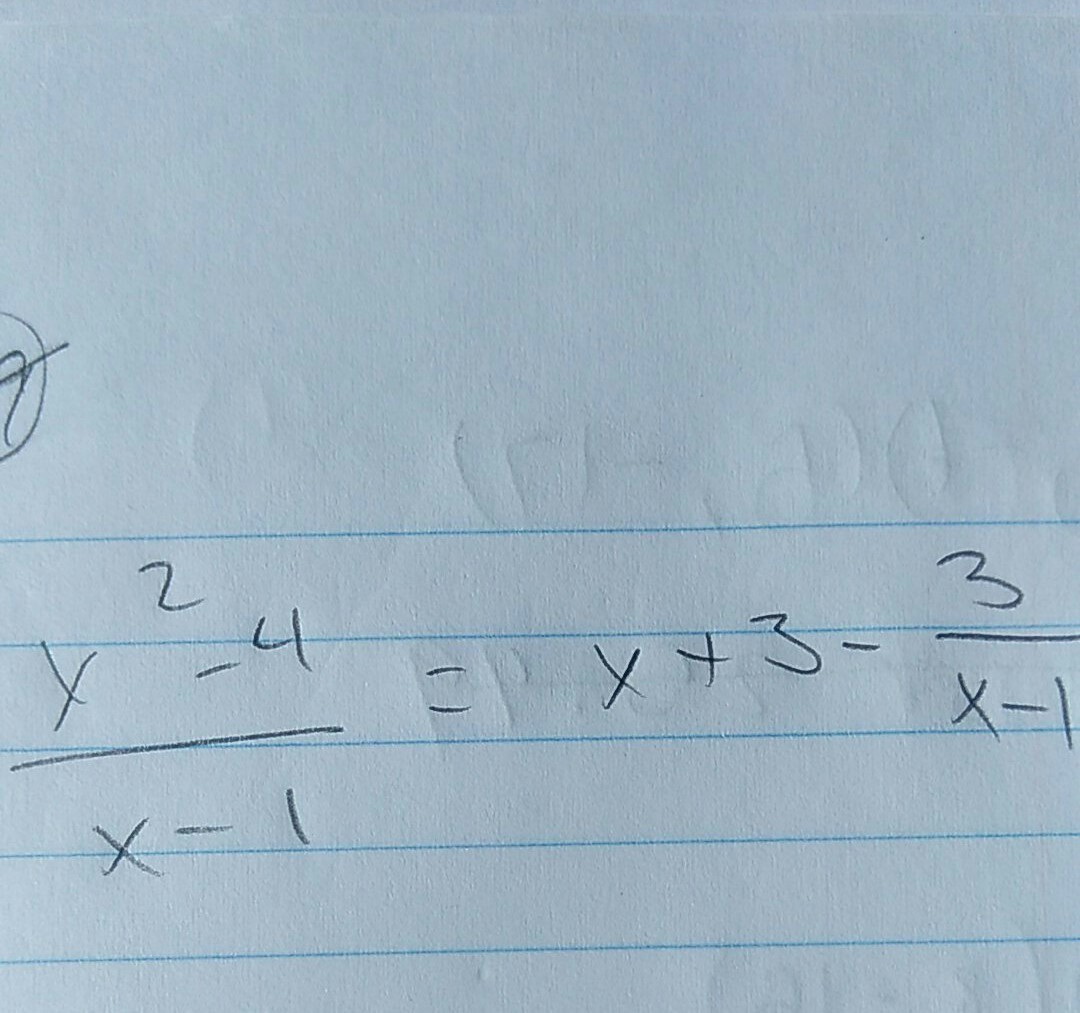 x² - 4 / x - 1 = x + 3 - 3 / x - 1